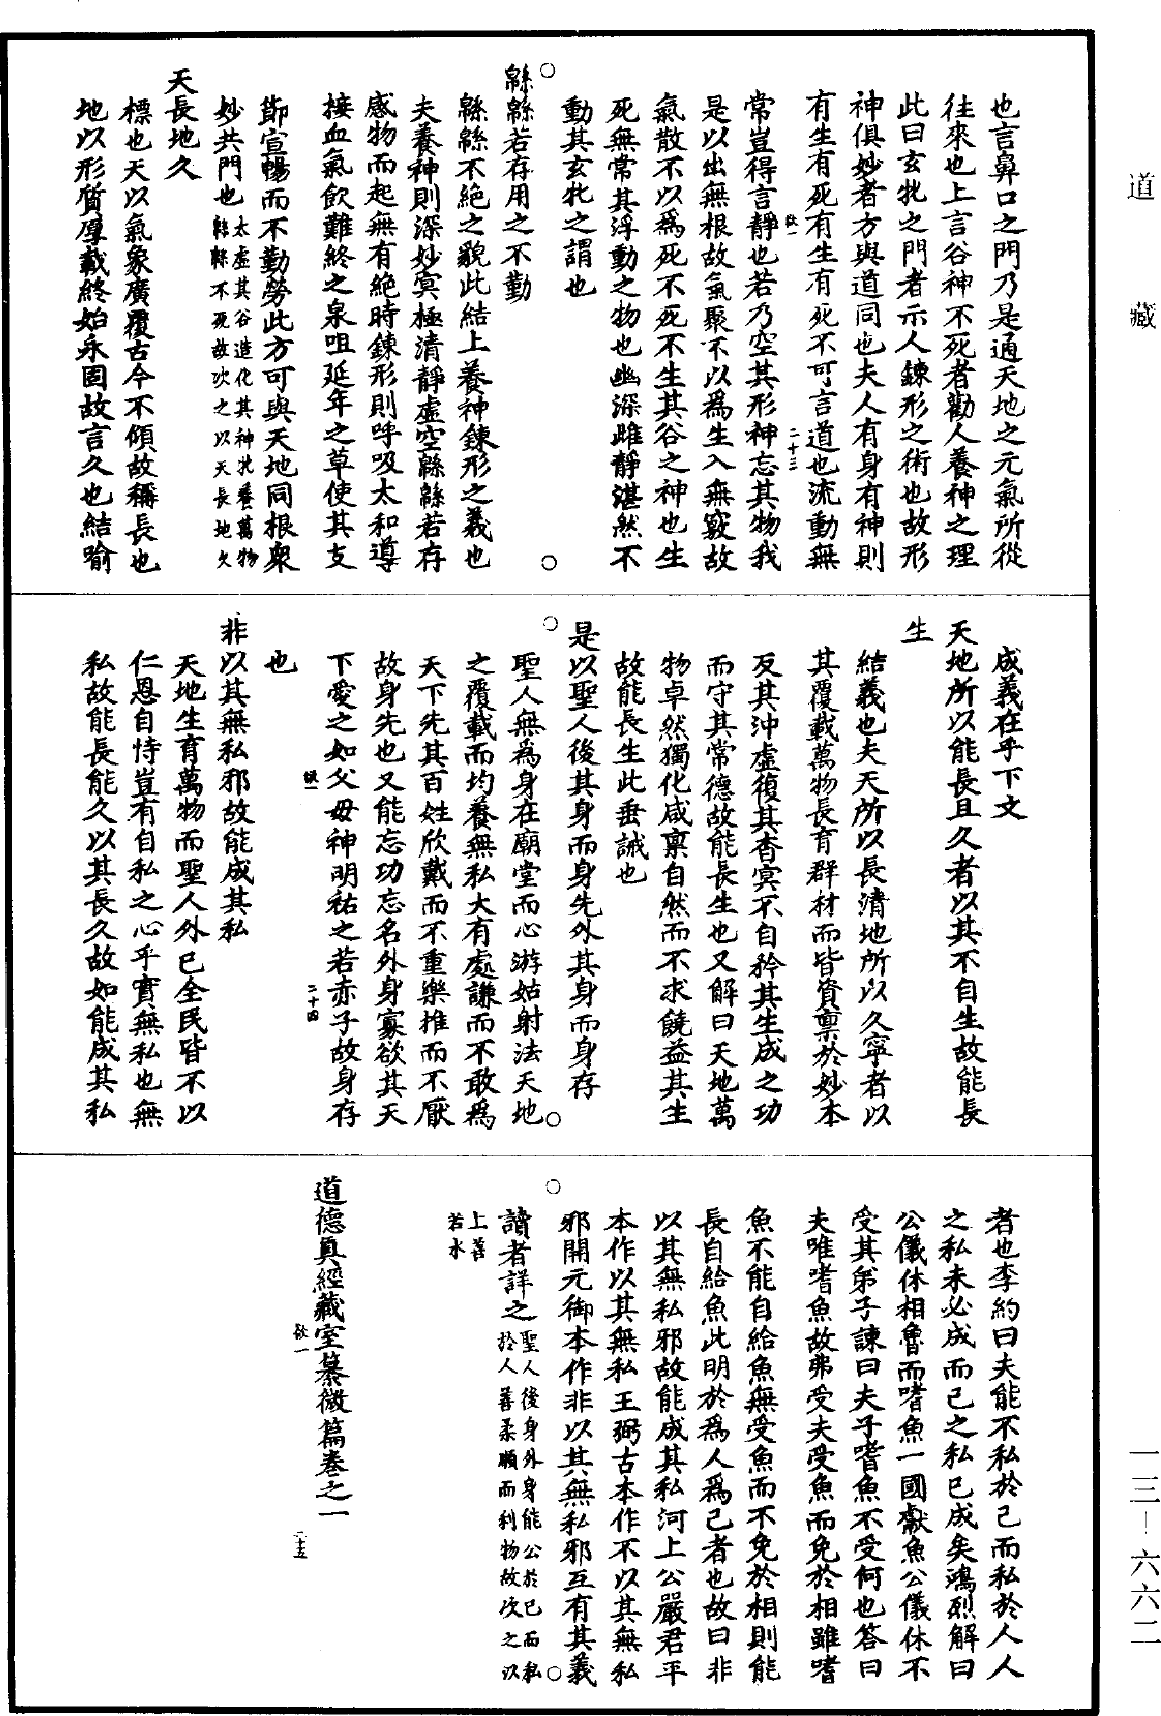 道藏
也言鼻口之門乃是通天地之元氣所從
往來也上言谷神不死者勸人養神之理
此曰玄牝之門者示人鍊形之術也故形
神俱妙者方與道同也夫人有身有神則
有生有死有生有死不可言道也流動無
二十三
常豈得言靜也若乃空其形神忘其物我
是以出無根故氣聚不以為生入無竅故
氣散不以為死不死不生其谷之神也生
死無常其浮動之物也幽深雌靜湛然不
動其玄牝之謂也
緜緜若存用之不勤
緜緜不絕之貌此結上養神鍊形之義也
夫養神則深妙冥極清靜虛空緜緜若存
感物而起無有絕時鍊形則呼吸太和導
接血氣飲難終之泉咀延年之草使其支
節宣暢而不勤勞此方可與天地同根衆
妙共門也太虛其谷造化其神牝養萬物
緜緜不死故次之以天長地久
天長地久
標也天以氣象廣覆古今不傾故稱長也
地以形質厚載終始永固故言久也結喻
成義在乎下文
天地所以能長且久者以其不自生故能長
生
結義也夫天所以長清地所以久寧者以
其覆載萬物長育群材而皆資稟於妙本
反其沖虛復其杳冥不自矜其生成之功
而守其常德故能長生也又解曰天地萬
物卓然獨化咸稟自然而不求饒益其生
故能長生此垂誡也
是以聖人後其身而身先外其身而身存
聖人無為身在廟堂而心游姑射法天地
之覆載而均養無私大有處謙而不敢為
天下先其百姓欣戴而不重樂推而不厭
故身先也又能忘功忘名外身寡欲其天
下愛之如父母神明祐之若赤子故身存
二十四
也
非以其無私邪故能成其私
天地生育萬物而聖人外己全民皆不以
仁恩自恃豈有自私之心乎實無私也無
私故能長能久以其長久故如能成其私
者也李約曰夫能不私於己而私於人人
之私未必成而己之私已成矣鴻烈解曰
公儀休相魯而嗜魚一國獻魚公儀休不
受其弟子諫曰夫子嗜魚不受何也答曰
夫唯嗜魚故弗受夫受魚而免於相雖嗜
魚不能自給魚無受魚而不免於相則能
長自給魚此明於為人為己者也故曰非
以其無私邪故能成其私河上公嚴君平
本作以其無私王弼古本作不以其無私
邪開元御本作非以其無私邪互有其義
讀者詳之聖人後身外身能公於己而私
於人善柔順而利物故次之以
上善
若水
道德真經藏室纂微篇卷之一
二十五
一三—六六二